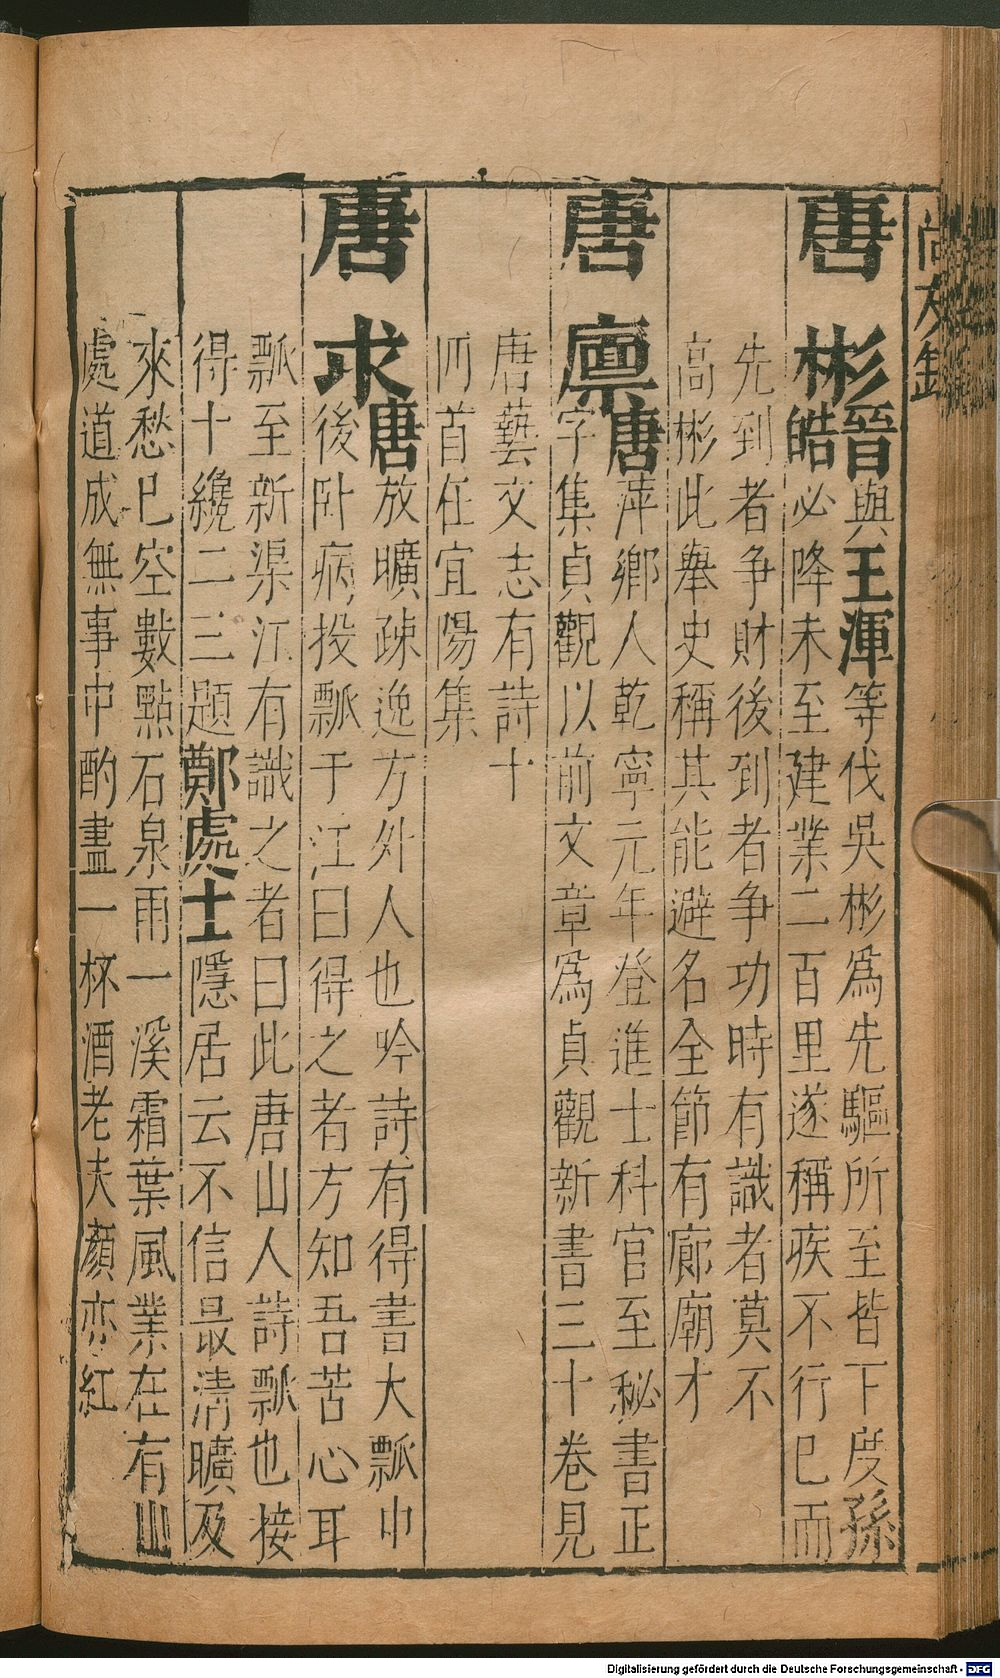 尚友錄
唐彬晉與王渾等伐吳彬爲先驅所至皆下度孫
皓必降未至建業二百里遂稱疾不行已而
先到者爭財後到者爭功時有識者莫不
高彬此舉史稱其能避名全節有廊廟才
唐廪唐萍鄉人乾寧元年登進士科官至秘書正
字集貞觀以前文章爲貞觀新書三十卷見
唐藝文志有詩十
所首任宜陽集
唐求唐放曠疎逸方外人也吟詩有得書大瓢中
後卧病投瓢于江曰得之者方知吾苦心耳
瓢至新渠江有識之者曰此唐山人詩瓢也接
得十纔二三題鄭處士隱居云不信最清曠及
來愁已空數點石泉雨一溪霜葉風業在有山
處道成無事中酌盡一杯酒老夫顏亦紅
Digitalisierung gefördert durch die Deutsche Forschungsgemeinschaft - DFG